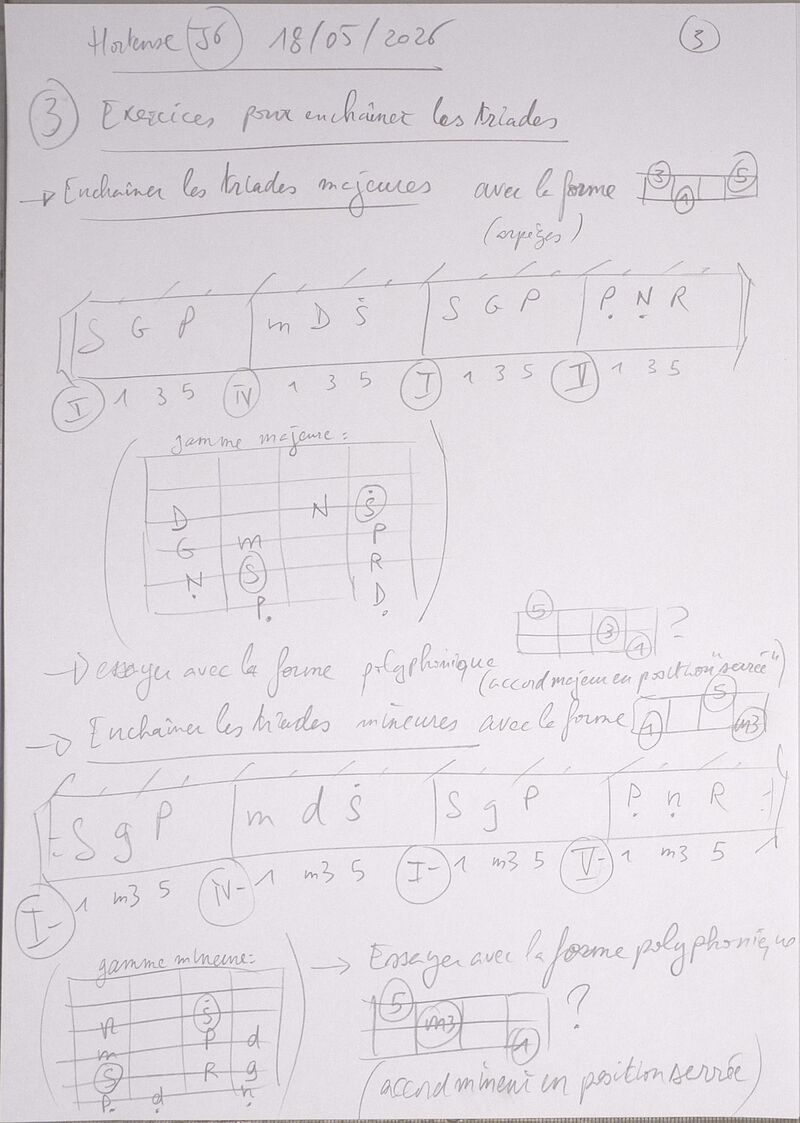 Hortense J6 18/05/2026 3
3 Exercices pour enchaîner les triades
→ Enchaîner les triades majeures avec la forme 3 1 5
(arpèges)
S G P m D Ṡ S G P P. N. R
I 1 3 5 IV 1 3 5 I 1 3 5 V 1 3 5
gamme majeure :
D N Ṡ
G m P
N. S R
P. D.
5 3 1 ?
→ essayer avec la forme polyphonique
(accord majeur en position "serrée")
→ Enchaîner les triades mineures avec la forme 1 5 m3
S g P m d Ṡ S g P P. n. R
I- 1 m3 5 IV- 1 m3 5 I- 1 m3 5 V- 1 m3 5 1
gamme mineure :
n Ṡ
m P d
S R g
P. d. n.
→ Essayer avec la forme polyphonique
5 m3 1 ?
(accord mineur en position serrée)